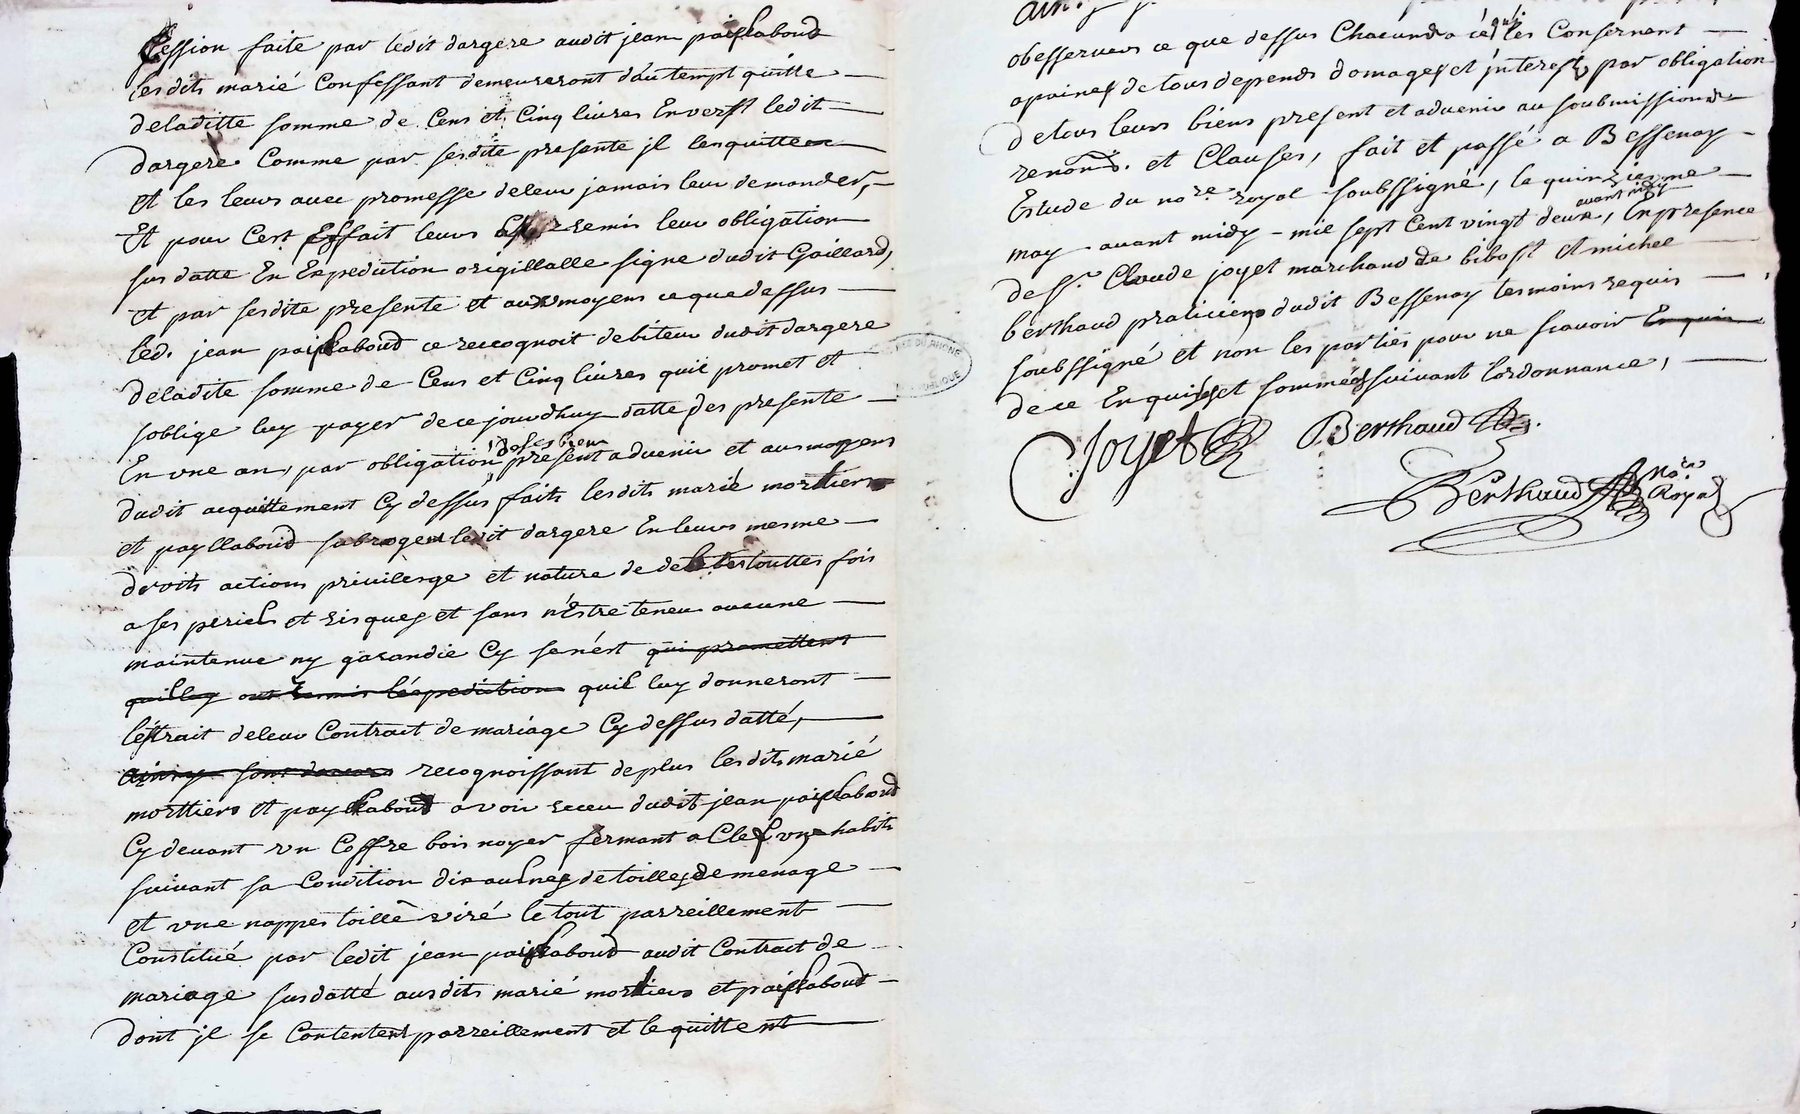 Cession faite par ledit dargere audit jean paillaboud
lesdits marié Confessant demeureront dautempt quitte
deladitte somme de Cens et Cinq livres Enverst ledit
dargere Comme par sesdite presente jl lenquittent
et les leurs avec promesse deleur jamais leur demander,
Et pour Cest Effait leurs remis leur obligation
susdatte En Expedition origillalle signe dudit Gaillard,
et par sesdite presente et au moyens ceque dessus
led. jean paillaboud ce reccognoit debiteur dudit dargere
deladite somme de Cens et Cinq livres quil promet et
soblige luy payer dece jourdhuy datte des presente
En une an, par obligation de ses biens present advenir et aus moyens
dudit acquittement Cy dessus faits lesdits marié morttiers
et payllaboud subrogent ledit dargere En leurs mesme
droits actions privilesge et nature de debtes touttes fois
a ses periels et risques et sans n'Estre teneu aucune
maintenue ny garandie Cy senést qui promettent
quilluy ont remis léxpedition quil luy donneront
léxtrait deleur Contract de mariage Cy dessus datté,
ainsy sont dacors recognoissant deplus lesdits marié
morttiers et payllaboud avoir receu dudit jean paillaboud
Cy devant un Coffre bois noyer fermant a Clef une habits
suivant sa Condition dix aulnes de toilles de menage
et une nappes toille viré le tout parreillement
Constitué par ledit jean paillaboud audit Contract de
mariage susdatté ausdits marié morttiers et paillaboud
dont jl se Contentent parreillement et le quittent
ainsy
obesserver ce que dessus Chacund a ce qui les Consernent
apaines de tous depends domages et jnterest, par obligation
detous leurs biens present et advenir au soubmissions
renons. et Clauses, fait et passé a Bessenay
Estude du nore. royal soubssigné, le quinziesme
may avant midy - mil sept Cent vingt deux, avant midy En presence
de sr. Claude joyet marchand de bibost et michel
berthaud praticiens dudit Bessenay tesmoins requis
soubssigné et non les parties pour ne scavoir Enquis
de ce Enquis et sommés suivant lordonnance,
Joyet Berthaud
Berthaud Nore Royal